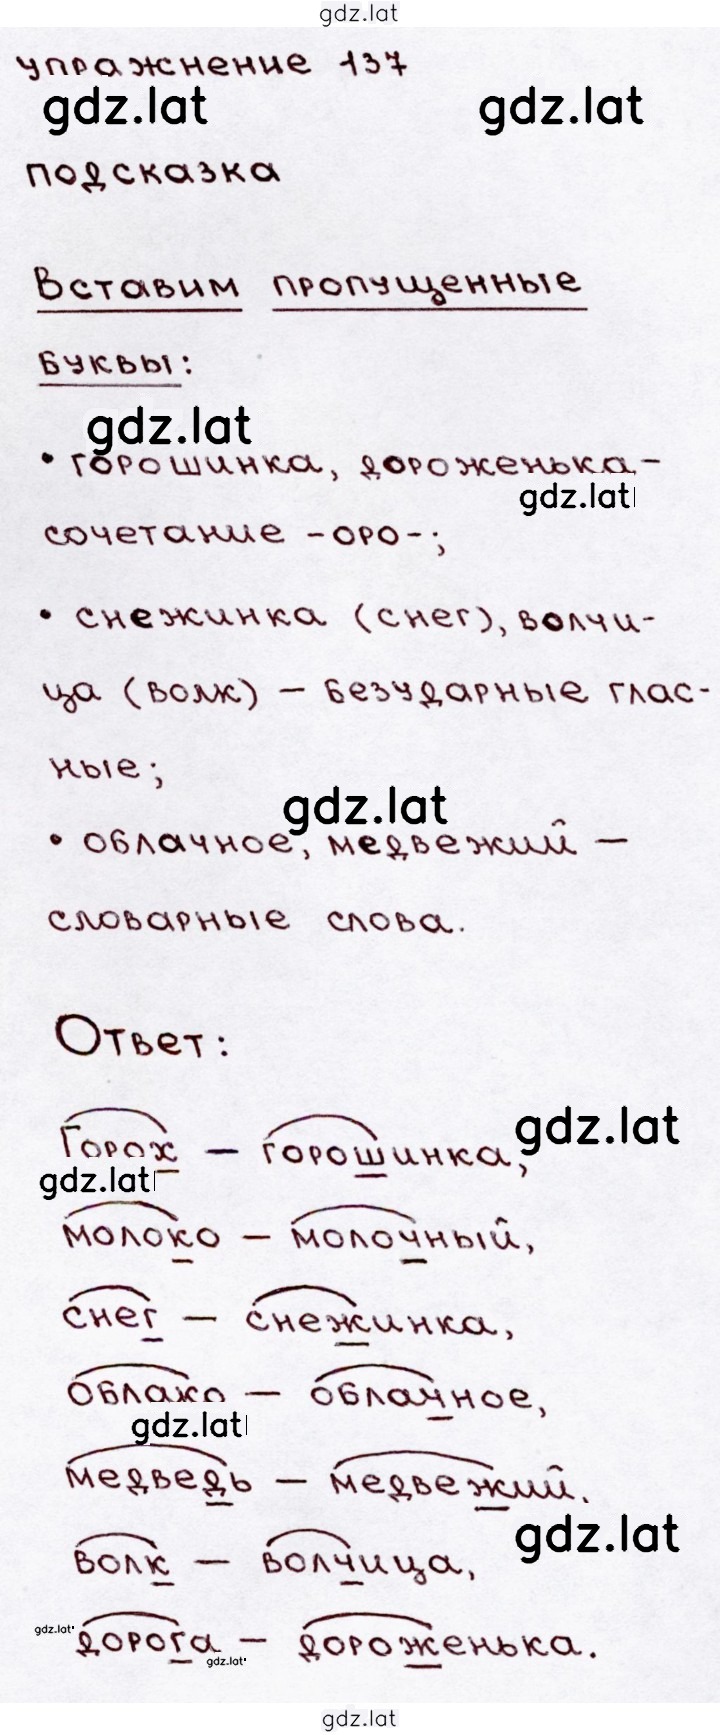 gdz.lat
упражнение 137
gdz.lat gdz.lat
подсказка
Вставим пропущенные
буквы:
gdz.lat
• горошинка, дороженька-
gdz.lat
сочетание -оро-;
• снежинка (снег), волчи-
ца (волк) - безударные глас-
ные;
gdz.lat
• облачное, медвежий -
словарные слова.
Ответ:
gdz.lat
Горох - горошинка,
gdz.lat
молоко - молочный,
снег - снежинка,
облако - облачное,
gdz.lat
медведь - медвежий.
gdz.lat
волк - волчица,
gdz.lat
дорога - дороженька.
gdz.lat
gdz.lat